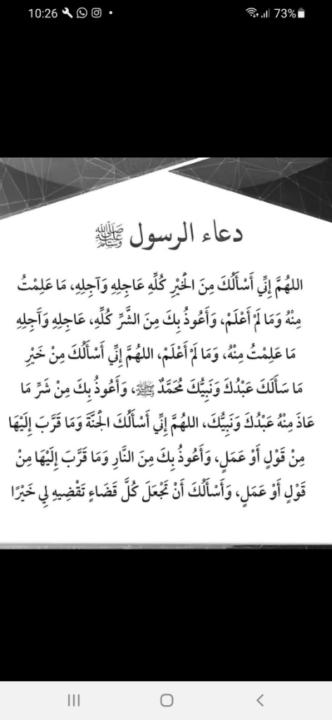 10:26
73%
دعاء الرسول ﷺ
اللهُمَّ إِنِّي أَسْأَلُكَ مِنَ الْخَيْرِ كُلِّهِ عَاجِلِهِ وَآجِلِهِ، مَا عَلِمْتُ
مِنْهُ وَمَا لَمْ أَعْلَمْ، وَأَعُوذُ بِكَ مِنَ الشَّرِّ كُلِّهِ، عَاجِلِهِ وَآجِلِهِ
مَا عَلِمْتُ مِنْهُ، وَمَا لَمْ أَعْلَمْ، اللهُمَّ إِنِّي أَسْأَلُكَ مِنْ خَيْرِ
مَا سَأَلَكَ عَبْدُكَ وَنَبِيُّكَ مُحَمَّدٌ ﷺ، وَأَعُوذُ بِكَ مِنْ شَرِّ مَا
عَاذَ مِنْهُ عَبْدُكَ وَنَبِيُّكَ، اللهُمَّ إِنِّي أَسْأَلُكَ الْجَنَّةَ وَمَا قَرَّبَ إِلَيْهَا
مِنْ قَوْلٍ أَوْ عَمَلٍ، وَأَعُوذُ بِكَ مِنَ النَّارِ وَمَا قَرَّبَ إِلَيْهَا مِنْ
قَوْلٍ أَوْ عَمَلٍ، وَأَسْأَلُكَ أَنْ تَجْعَلَ كُلَّ قَضَاءٍ تَقْضِيهِ لِي خَيْرًا